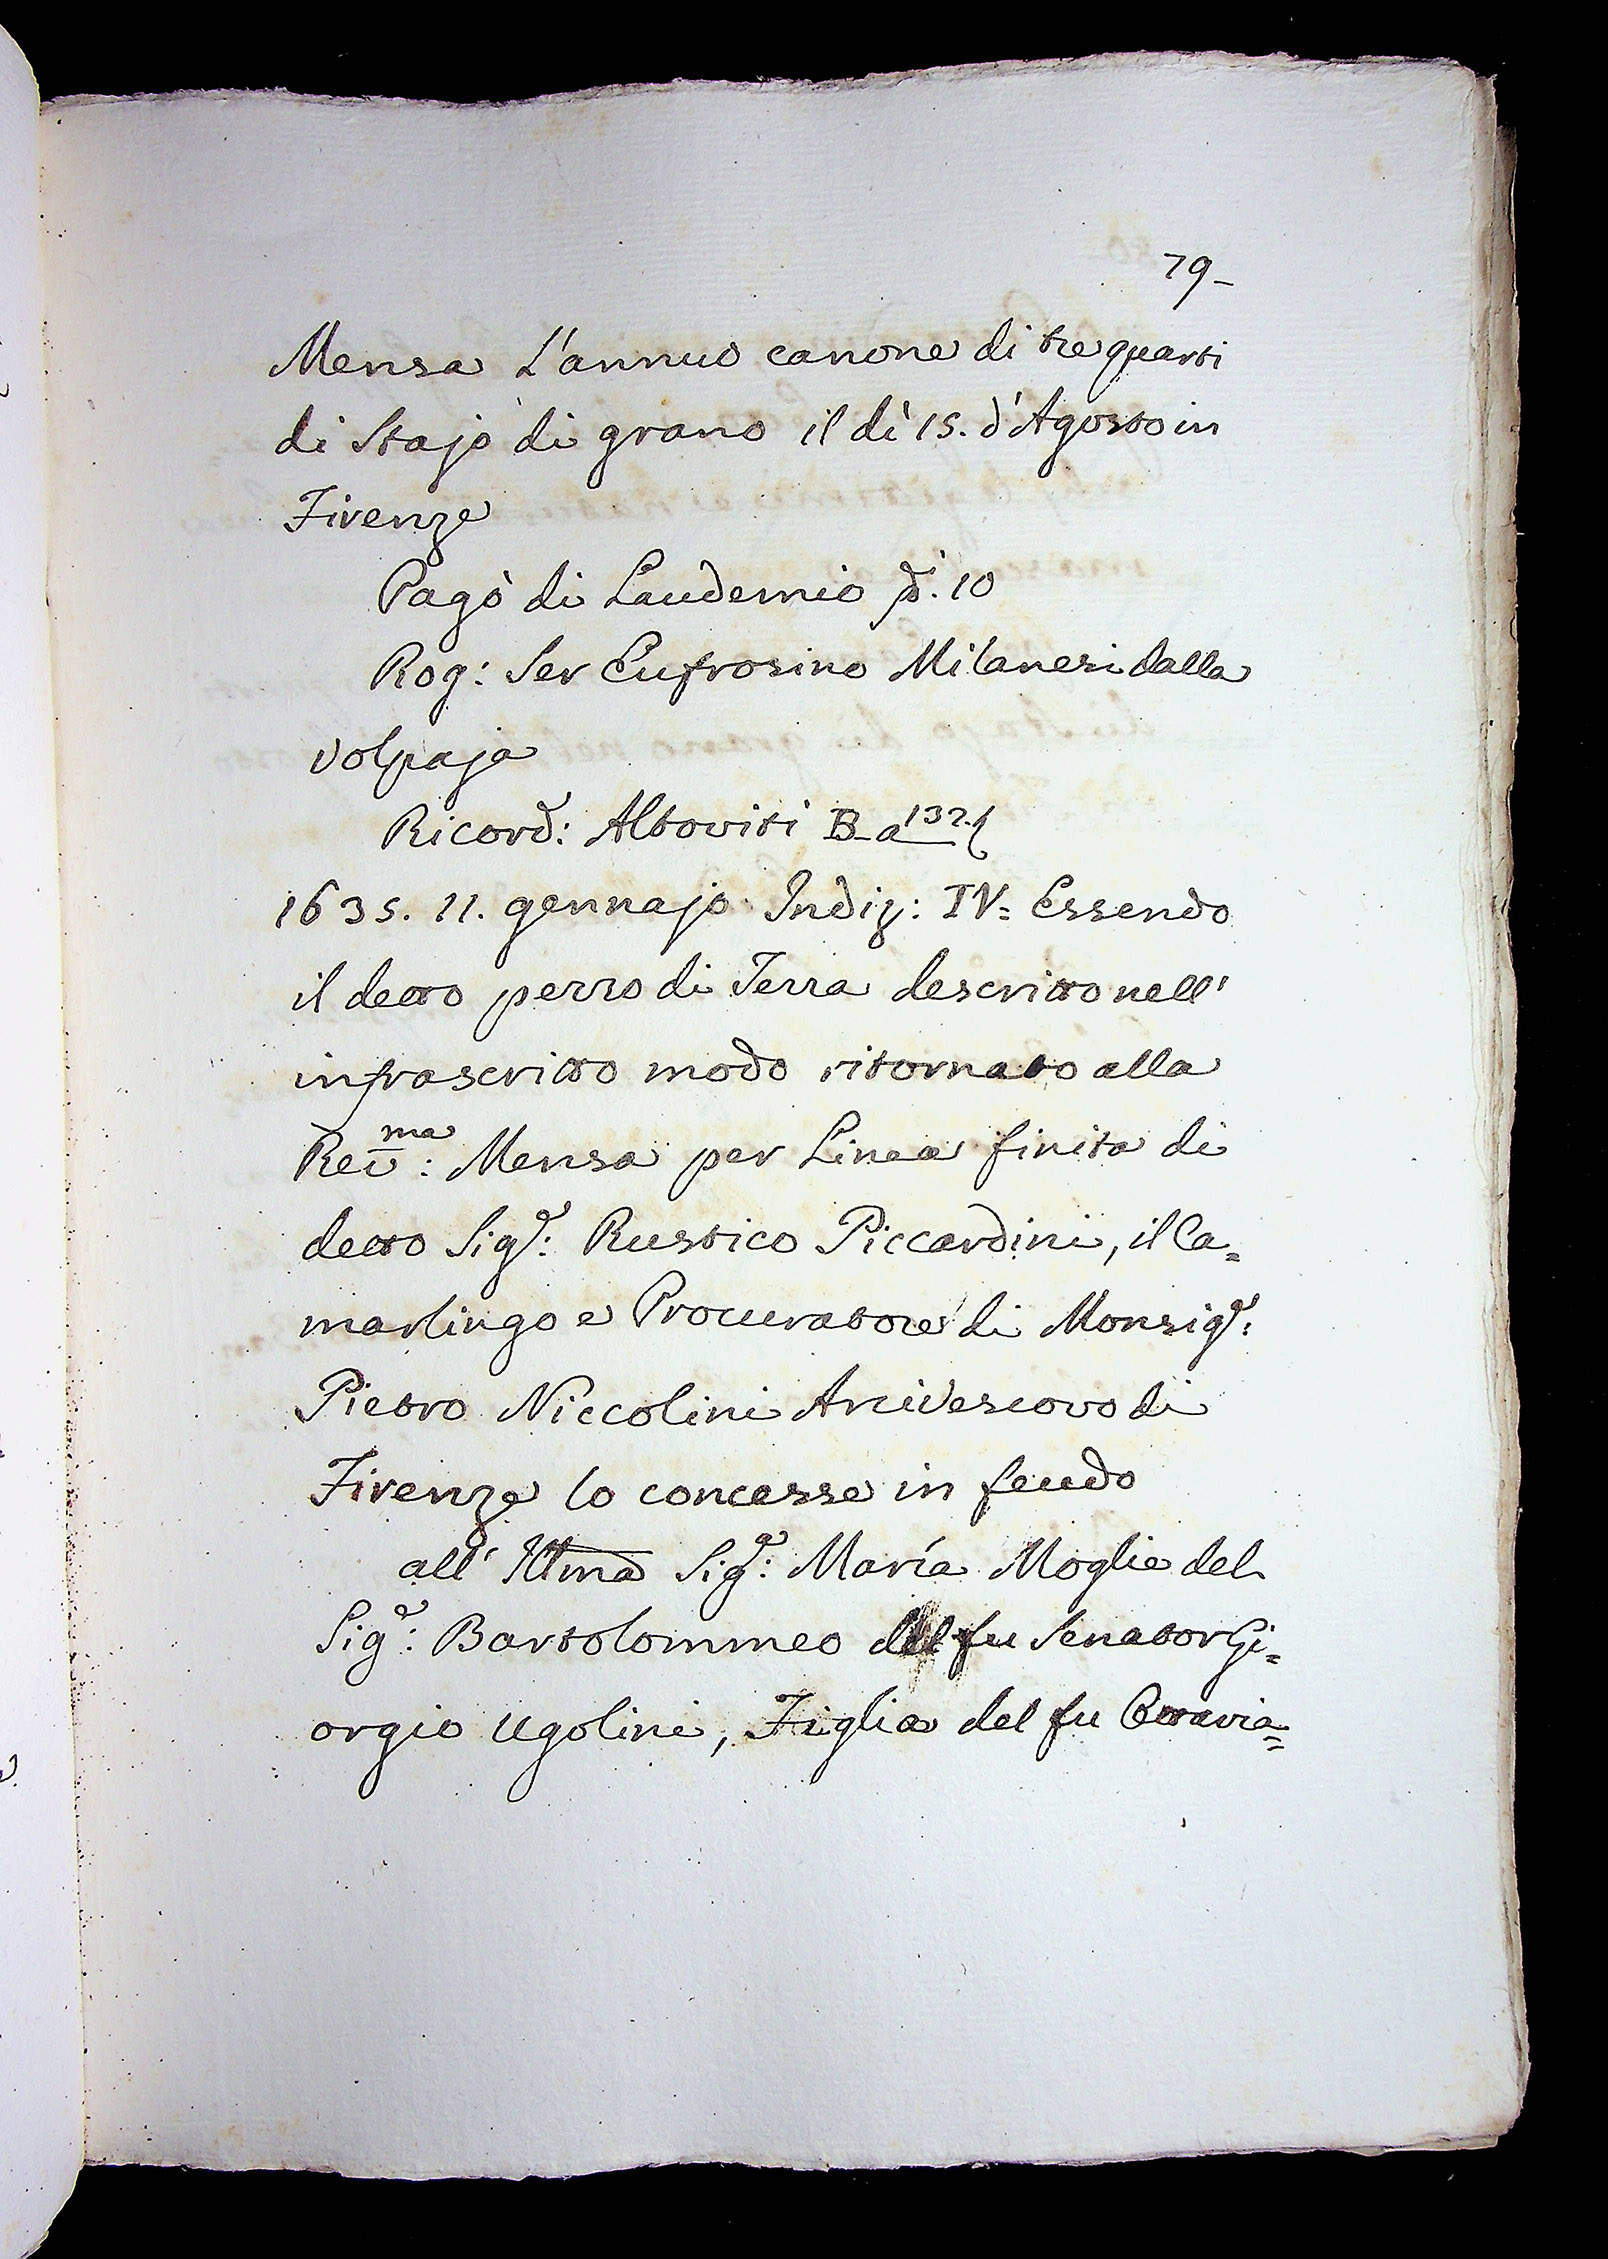 79-
Mensa L'annuo canone di tre quarti
di Stajo di grano il dì 15. d'Agosto in
Firenze
Pagò di Laudemio 10
Rog: Ser Eufrosino Milanesi dalla
Volpaja
Ricord: Altoviti B-a 132.
1635. 11. gennajo Indiz: IV= Essendo
il detto pezzo di Terra descritto nell'
infrascritto modo ritornato alla
Rev:ma Mensa per Linea finita di
detto Sigr: Rustico Piccardini, il Ca=
marlingo e Procuratore di Monsigr:
Pietro Niccolini Arcivescovo di
Firenze lo concesse in feudo
all' Illma Siga: María Moglie del
Sigr: Bartolommeo del fu Senator Gi=
orgio Ugolini, Figlia del fu Ottavia=